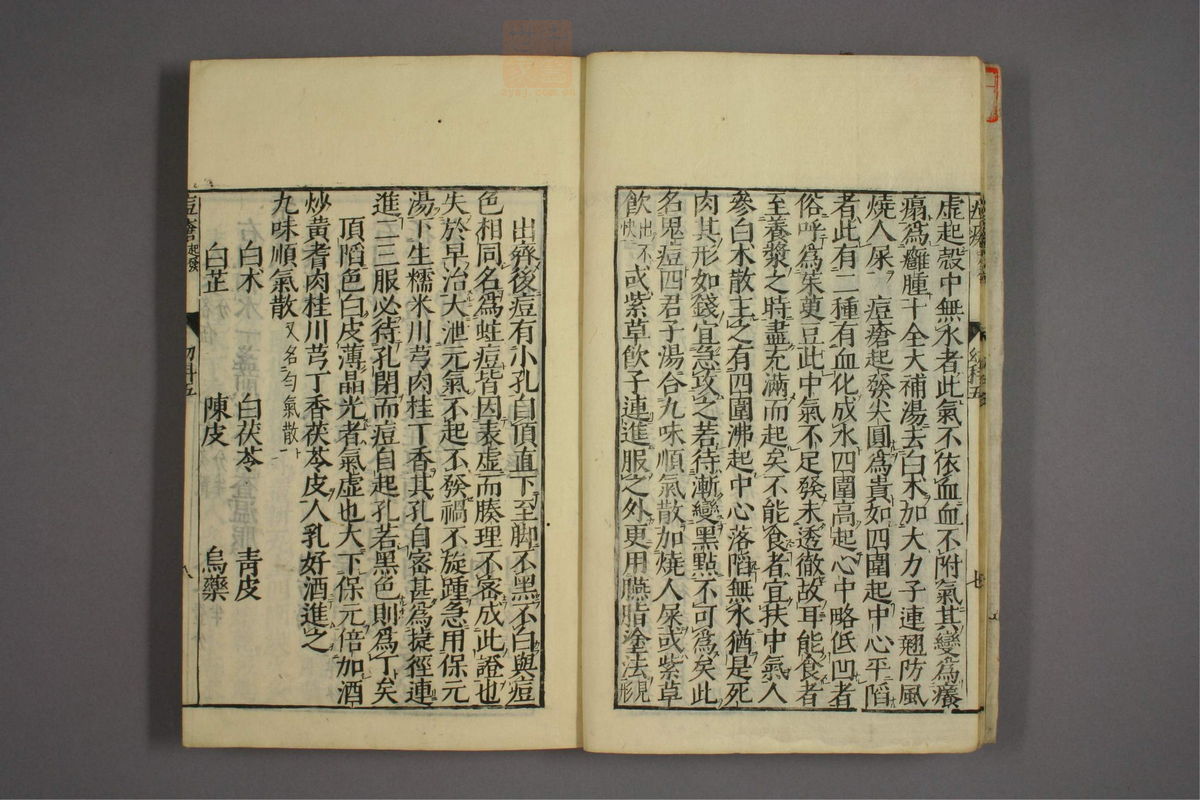 虛起殼中無水者此氣不依血血不附氣其變爲癢
瘑爲癰腫十全大補湯去白朮加大力子連翹防風
燒人屎 痘瘡起發尖圓爲貴如四圍起中心平陷
者此有二種有血化成水四圍高起心中略低凹者
俗呼爲茱萸豆此中氣不足發未透徹故耳能食者
至養漿之時盡充滿而起矣不能食者宜扶中氣人
參白朮散主之有四圍沸起中心落陷無水猶是死
肉其形如錢宜急攻之若待漸變黑點不可爲矣此
名鬼痘四君子湯合九味順氣散加燒人屎或紫草
飲出不快或紫草飲子連進服之外更用臙脂塗法見形
出齊後痘有小孔自頂直下至脚不黑不白與痘
色相同名爲蛀痘皆因表虛而腠理不密成此證也
失於早治大泄元氣不起不發禍不旋踵急用保元
湯下生糯米川芎肉桂丁香其孔自密甚爲捷徑連
進二三服必待孔閉而痘自起孔若黑色則爲丁矣
頂陷色白皮薄晶光者氣虛也大下保元倍加酒
炒黃耆肉桂川芎丁香茯苓皮人乳好酒進之
九味順氣散又名勻氣散
白朮 白茯苓 靑皮
白芷 陳皮 烏藥
痘瘡起發 幼科五 八